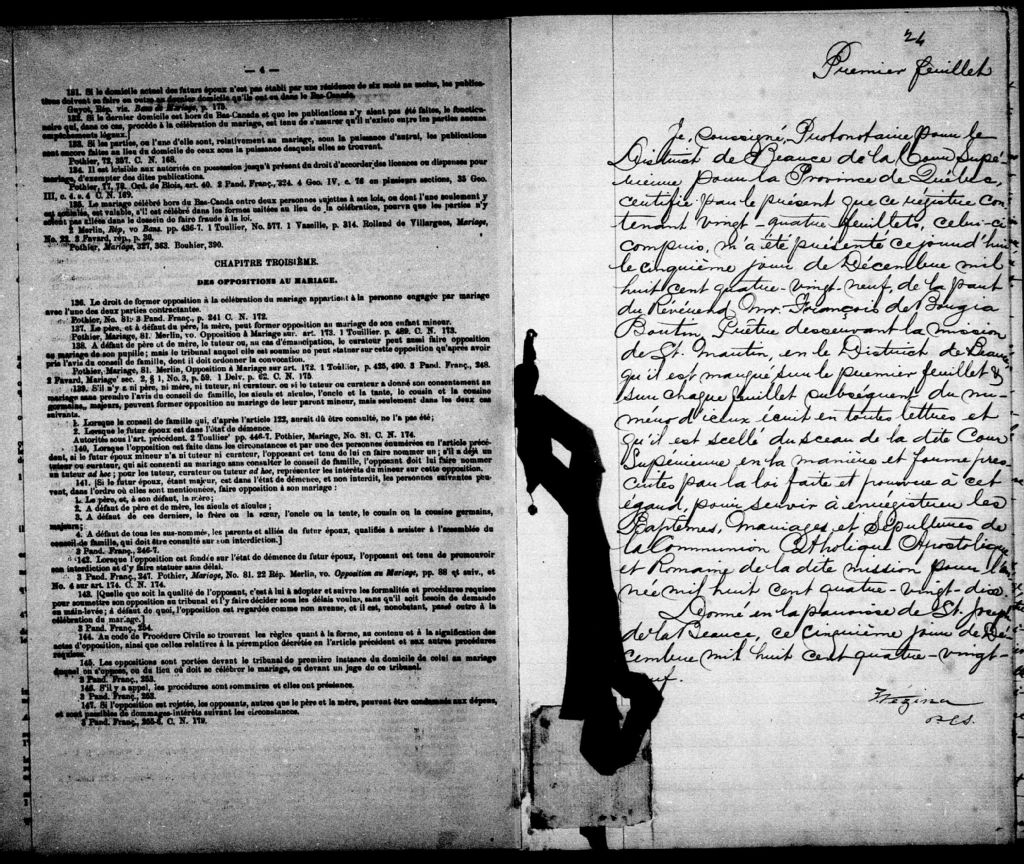 — 4 —
131. Si le domicile actuel des futurs époux n'est pas établi par une résidence de six mois au moins, les publica-
tions doivent se faire en outre au dernier domicile qu'ils ont eu dans le Bas-Canada.
Guyot, Rép. vic. Bans de Mariage, p. 175.
132. Si le dernier domicile est hors du Bas-Canada et que les publications n'y aient pas été faites, le fonction-
naire qui, dans ce cas, procède à la célébration du mariage, est tenu de s'assurer qu'il n'existe entre les parties aucuns
empêchements légaux.]
133. Si les parties, ou l'une d'elle sont, relativement au mariage, sous la puissance d'autrui, les publications
sont encore faites au lieu du domicile de ceux sous la puissance desquels elles se trouvent.
Pothier, 72, 357. C. N. 168.
134. Il est loisible aux autorités en possession jusqu'à présent du droit d'accorder des licences ou dispenses pour
mariage, d'exempter des dites publications.
Pothier, 77, 78. Ord. de Blois, art. 40. 2 Pand. Franç., 324. 4 Geo. IV, c. 76 en plusieurs sections, 35 Geo.
III, c. 4, s. 4 C. N. 169.
135. Le mariage célébré hors du Bas-Canada entre deux personnes sujettes à ses lois, ou dont l'une seulement y
est soumise, est valable, s'il est célébré dans les formes usitées au lieu de la célébration, pourvu que les parties n'y
soient pas allées dans le dessein de faire fraude à la loi.
2 Merlin, Rép, vo Bans. pp. 436-7. 1 Toullier, No. 577. 1 Vazeille, p. 314. Rolland de Villargues, Mariage,
No. 22. 3 Favard, rép., p. 30.
Pothier, Mariage, 327, 363. Bouhier, 390.
CHAPITRE TROISIÈME.
DES OPPOSITIONS AU MARIAGE.
136. Le droit de former opposition à la célébration du mariage appartient à la personne engagée par mariage
avec l'une des deux parties contractantes.
Pothier, No. 81. 3 Pand. Franç., p. 241 C. N. 172.
137. Le père, et à défaut du père, la mère, peut former opposition au mariage de son enfant mineur.
Pothier, Mariage, 81. Merlin, vo. Opposition à Mariage sur. art. 173. 1 Touillier. p. 489. C. N. 173.
138. A défaut de père et de mère, le tuteur ou, au cas d'émancipation, le curateur peut aussi faire opposition
au mariage de son pupile; mais le tribunal auquel elle est soumise ne peut statuer sur cette opposition qu'après avoir
pris l'avis du conseil de famille, dont il doit ordonner la convocation.
Pothier, Mariage, 81. Merlin, Opposition à Mariage sur art. 172. 1 Toullier, p. 425, 490. 3 Pand. Franç., 248.
2 Favard, Mariage sec. 2, § 1, No. 3, p. 59. 1 Delv. p. 62. C. N. 175
139. S'il n'y a ni père, ni mère, ni tuteur, ni curateur, ou si le tuteur ou curateur a donné son consentement au
mariage sans prendre l'avis du conseil de famille, les aïeuls et aïeules, l'oncle et la tante, le cousin et la cousine
germains, majeurs, peuvent former opposition au mariage de leur parent mineur, mais seulement dans les deux cas
suivants.
1. Lorsque le conseil de famille qui, d'après l'article 122, aurait dû être consulté, ne l'a pas été;
2. Lorsque le futur époux est dans l'état de démence.
Autorités sous l'art. précédent. 2 Toullier pp. 446-7. Pothier, Mariage, No. 81. C. N. 174.
140. Lorsque l'opposition est faite dans les circonstances et par une des personnes énumérées en l'article précé-
dent, si le futur époux mineur n'a ni tuteur ni curateur, l'opposant est tenu de lui en faire nommer un; s'il a déjà un
tuteur ou curateur, qui ait consenti au mariage sans consulter le conseil de famille, l'opposant doit lui faire nommer
un tuteur ad hoc; pour les tuteur, curateur ou tuteur ad hoc, représenter les intérêts du mineur sur cette opposition.
141. [Si le futur époux, étant majeur, est dans l'état de démence, et non interdit, les personnes suivantes peu-
vent, dans l'ordre où elles sont mentionnées, faire opposition à son mariage :
1. Le père, et, à son défaut, la mère;
2. A défaut de père et de mère, les aïeuls et aïeules;
3. A défaut de ces derniers, le frère ou la sœur, l'oncle ou la tante, le cousin ou la cousine germains,
majeurs;
4. A défaut de tous les sus-nommés, les parents et alliés du futur époux, qualifiés à assister à l'assemblée du
conseil de famille, qui doit être consulté sur son interdiction.]
3 Pand. Franç., 246-7.
142. Lorsque l'opposition est fondée sur l'état de démence du futur époux, l'opposant est tenu de promouvoir
son interdiction et d'y faire statuer sans délai.
3 Pand. Franç., 247. Pothier, Mariage, No. 81. 22 Rép. Merlin, vo. Opposition au Mariage, pp. 88 et suiv., et
No. 4 sur art. 174. C. N. 174.
143. [Quelle que soit la qualité de l'opposant, c'est à lui à adopter et suivre les formalités et procédures requises
pour soumettre son opposition au tribunal et l'y faire décider sous les délais voulus, sans qu'il soit besoin de demande
en main-levée; à défaut de quoi, l'opposition est regardée comme non avenue, et il est, nonobstant, passé outre à la
célébration du mariage.]
3 Pand. Franç., 254.
144. Au code de Procédure Civile se trouvent les règles quant à la forme, au contenu et à la signification des
actes d'opposition, ainsi que celles relatives à la péremption décrétée en l'article précédent et aux autres procédures
requises.
145. Les oppositions sont portées devant le tribunal de première instance du domicile de celui au mariage
duquel on s'oppose, ou du lieu où doit se célébrer le mariage, ou devant un juge de ce tribunal.
3 Pand. Franç., 253.
146. S'il y a appel, les procédures sont sommaires et elles ont préséance.
3 Pand. Franç., 252.
147. Si l'opposition est rejetée, les opposants, autres que le père et la mère, peuvent être condamnés aux dépens,
et sont passibles de dommages-intérêts suivant les circonstances.
3 Pand. Franç., 255-8. C. N. 179.
24
Premier feuillet
Je, soussigné, Protonotaire pour le
District de Beauce de la Cour Supé-
rieure pour la Province de Québec,
certifie par le présent que ce régistre con-
tenant vingt-quatre feuillets, celui-ci
compris, m'a été présenté ce jourd'hui
le cinquième jour de Décembre mil
huit cent quatre-vingt-neuf, de la part
du Révérend Mr. François de Borgia
Boutin, Prêtre desservant la mission
de St. Martin, en le District de Beauce
qu'il est marqué sur le premier feuillet &
sur chaque feuillet subséquent du nu-
méro d'iceux écrit en toute lettres et
qu'il est scellé du sceau de la dite Cour
Supérieure en la manière et forme pres-
crites par la loi faite et pourvue à cet
égard, pour servir à enrégistrer les
Baptêmes, Mariages, et Sépultures de
la Communion Catholique Apostolique
et Romaine de la dite mission pour l'an-
née mil huit cent quatre-vingt-dix.
Donné en la paroisse de St. Joseph
de la Beauce, ce cinquième jour de Dé-
cembre mil huit cent quatre-vingt-
neuf.
Vézina
P.C.S.